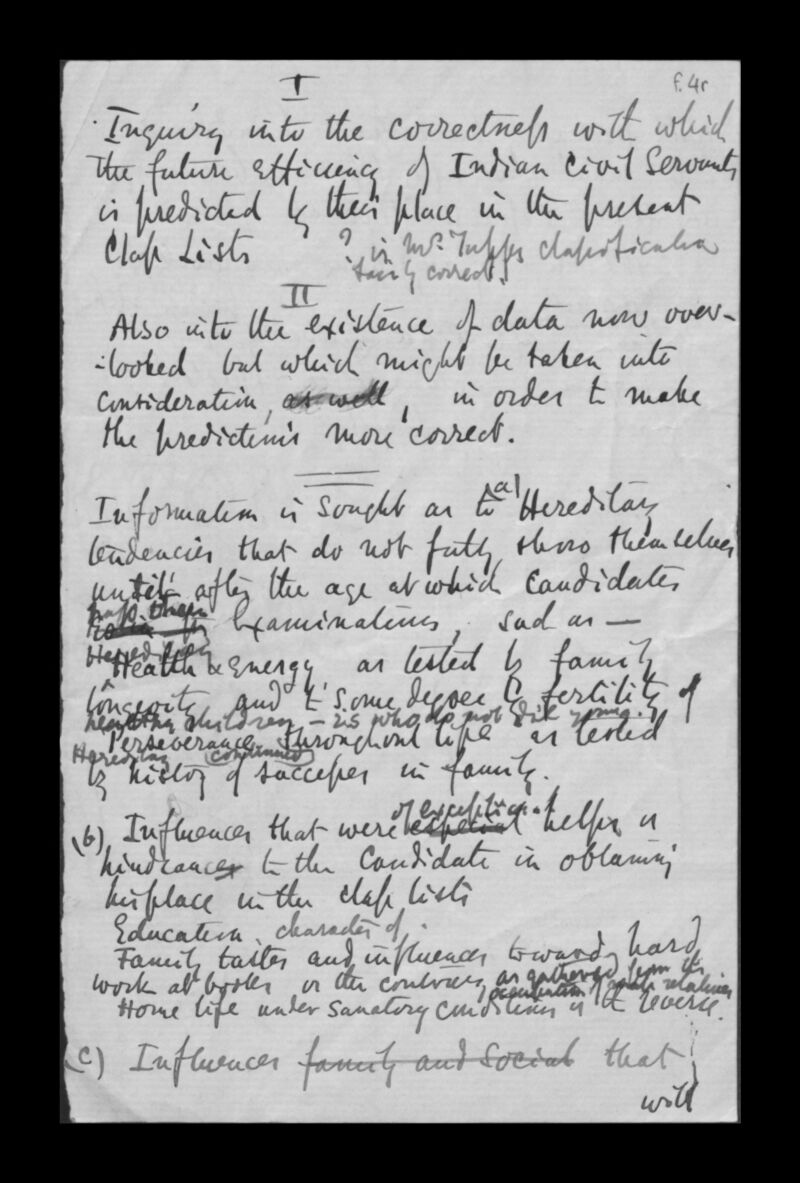 f. 4r
I
Inquiry into the correctness with which
the future efficiency of Indian Civil Servants
is predicted by their place in the present
Class Lists ? is Mr. Tupper classification
fairly correct.
II
Also into the existence of data now over-
-looked but which might be taken into
consideration, as well, in order to make
the predictions more correct.
Information is sought as to (a) Hereditary
tendencies that do not fully show themselves
until after the age at which candidates
pass their
Examinations, such as —
Hereditary
Health & Energy, as tested by family
longevity and to some degree by fertility of
healthy children – is who do not die young.
Perseverance throughout life as tested
Hereditary continued
by history of successes in family.
of exceptional
(b) Influences that were especial helps or
hindrances to the Candidate in obtaining
his place in the class lists
Education, character of.
Family tastes and influences towards hard
work at books or the contrary as gathered from the
occupation of male relatives
Home life under sanatory conditions or the reverse.
(c) Influences family and social that
will